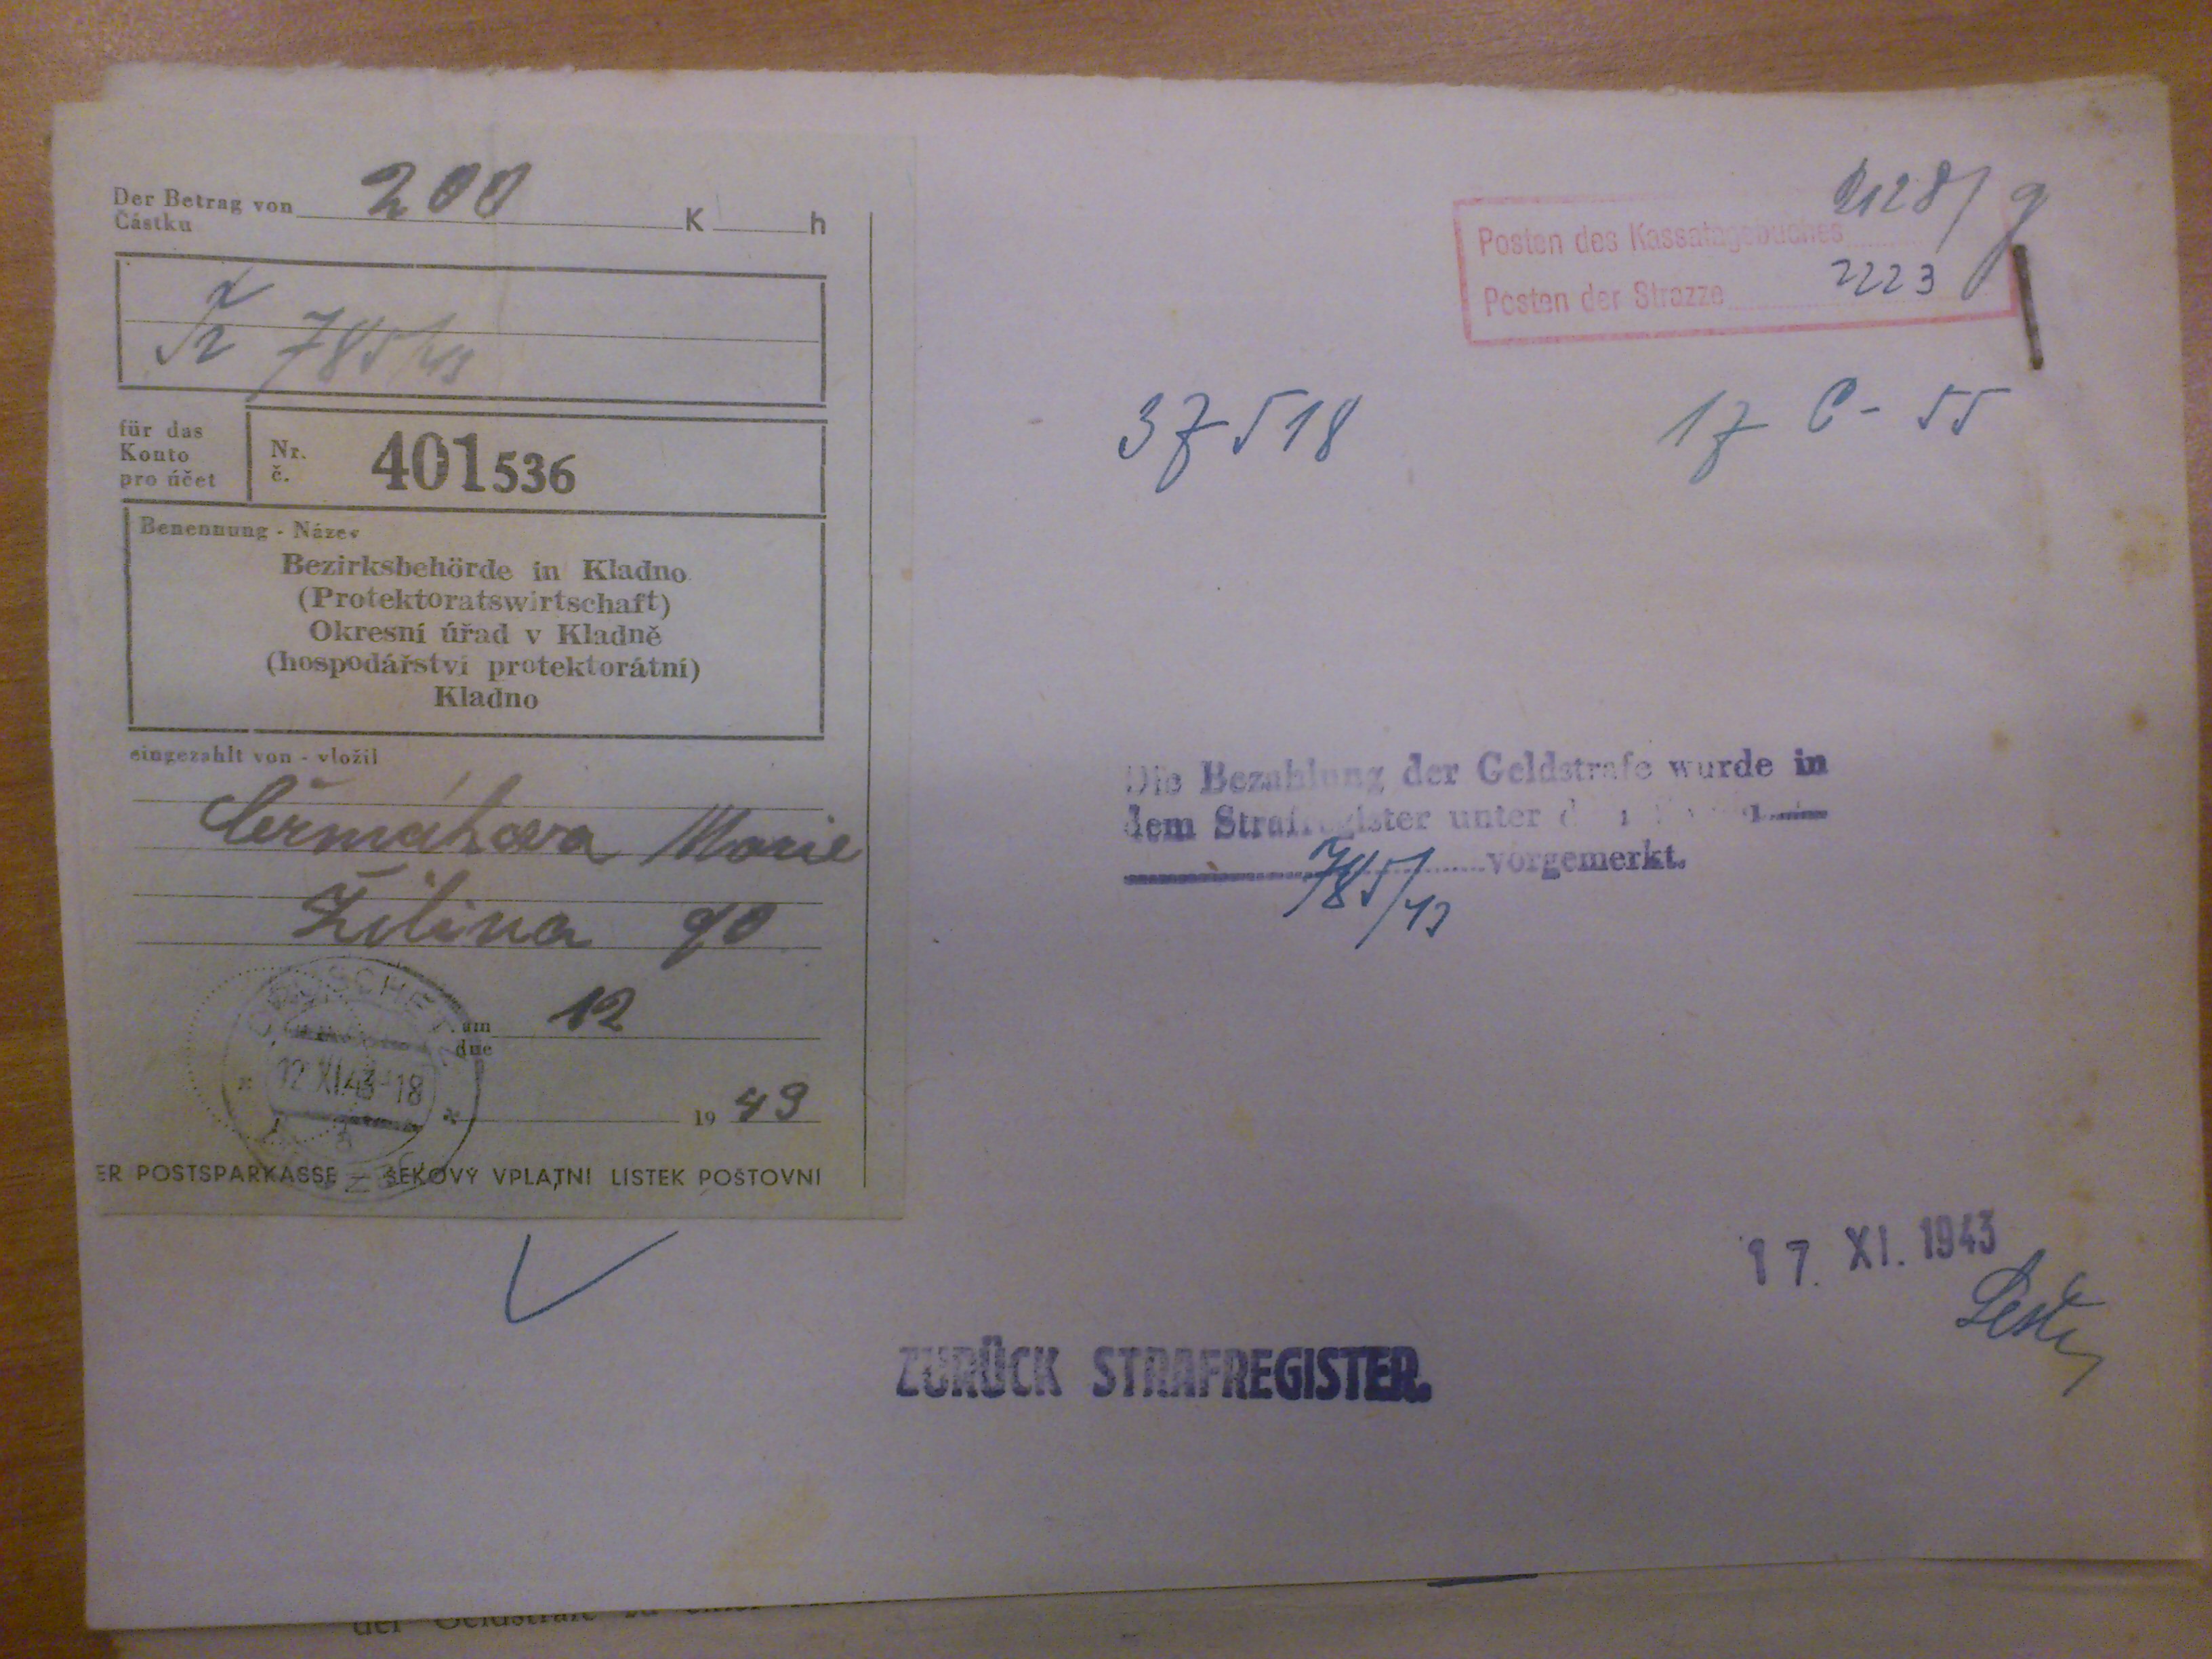 Der Betrag von 200 K h
Částku
Tr 785/43
für das
Konto
pro účet
Nr.
č.
401536
Benennung - Název
Bezirksbehörde in Kladno
(Protektoratswirtschaft)
Okresní úřad v Kladně
(hospodářství protektorátní)
Kladno
eingezahlt von - vložil
Čermáková Marie
Žilina 90
am 12
dne
12 XI 43-18
19 43
ER POSTSPARKASSE – ŠEKOVÝ VPLATNÍ LÍSTEK POŠTOVNÍ
Posten des Kassatagebuches
Posten der Strazze 2223
37518
17 C - 55
Die Bezahlung der Geldstrafe wurde in
dem Strafregister unter
785/43 vorgemerkt.
17. XI. 1943
ZURÜCK STRAFREGISTER.
der Geldstrafe zu einer